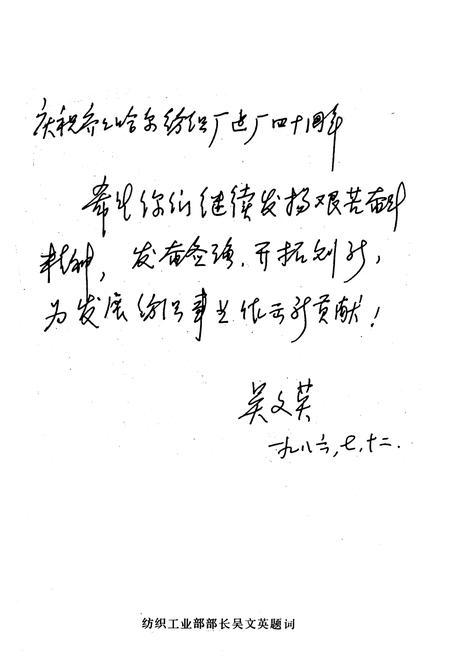 庆祝齐齐哈尔纺织厂建厂四十周年
希望你们继续发扬艰苦奋斗
精神，发奋图强，开拓创新，
为发展纺织事业作出新贡献！
吴文英
一九八六，七，十二．
纺织工业部部长吴文英题词